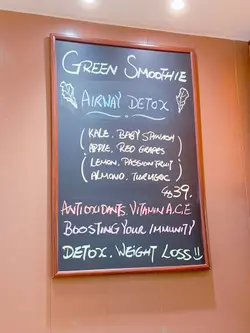 GREEN SMOOTHIE
AIRWAY DETOX
(KALE. BABY SPINACH)
(APPLE. RED GRAPES)
(LEMON. PASSION FRUIT)
(ALMOND. TURMERIC)
39.
ANTIOXIDANTS. VITAMIN A.C.E
BOOSTING YOUR IMMUNITY
DETOX. WEIGHT LOSS!!